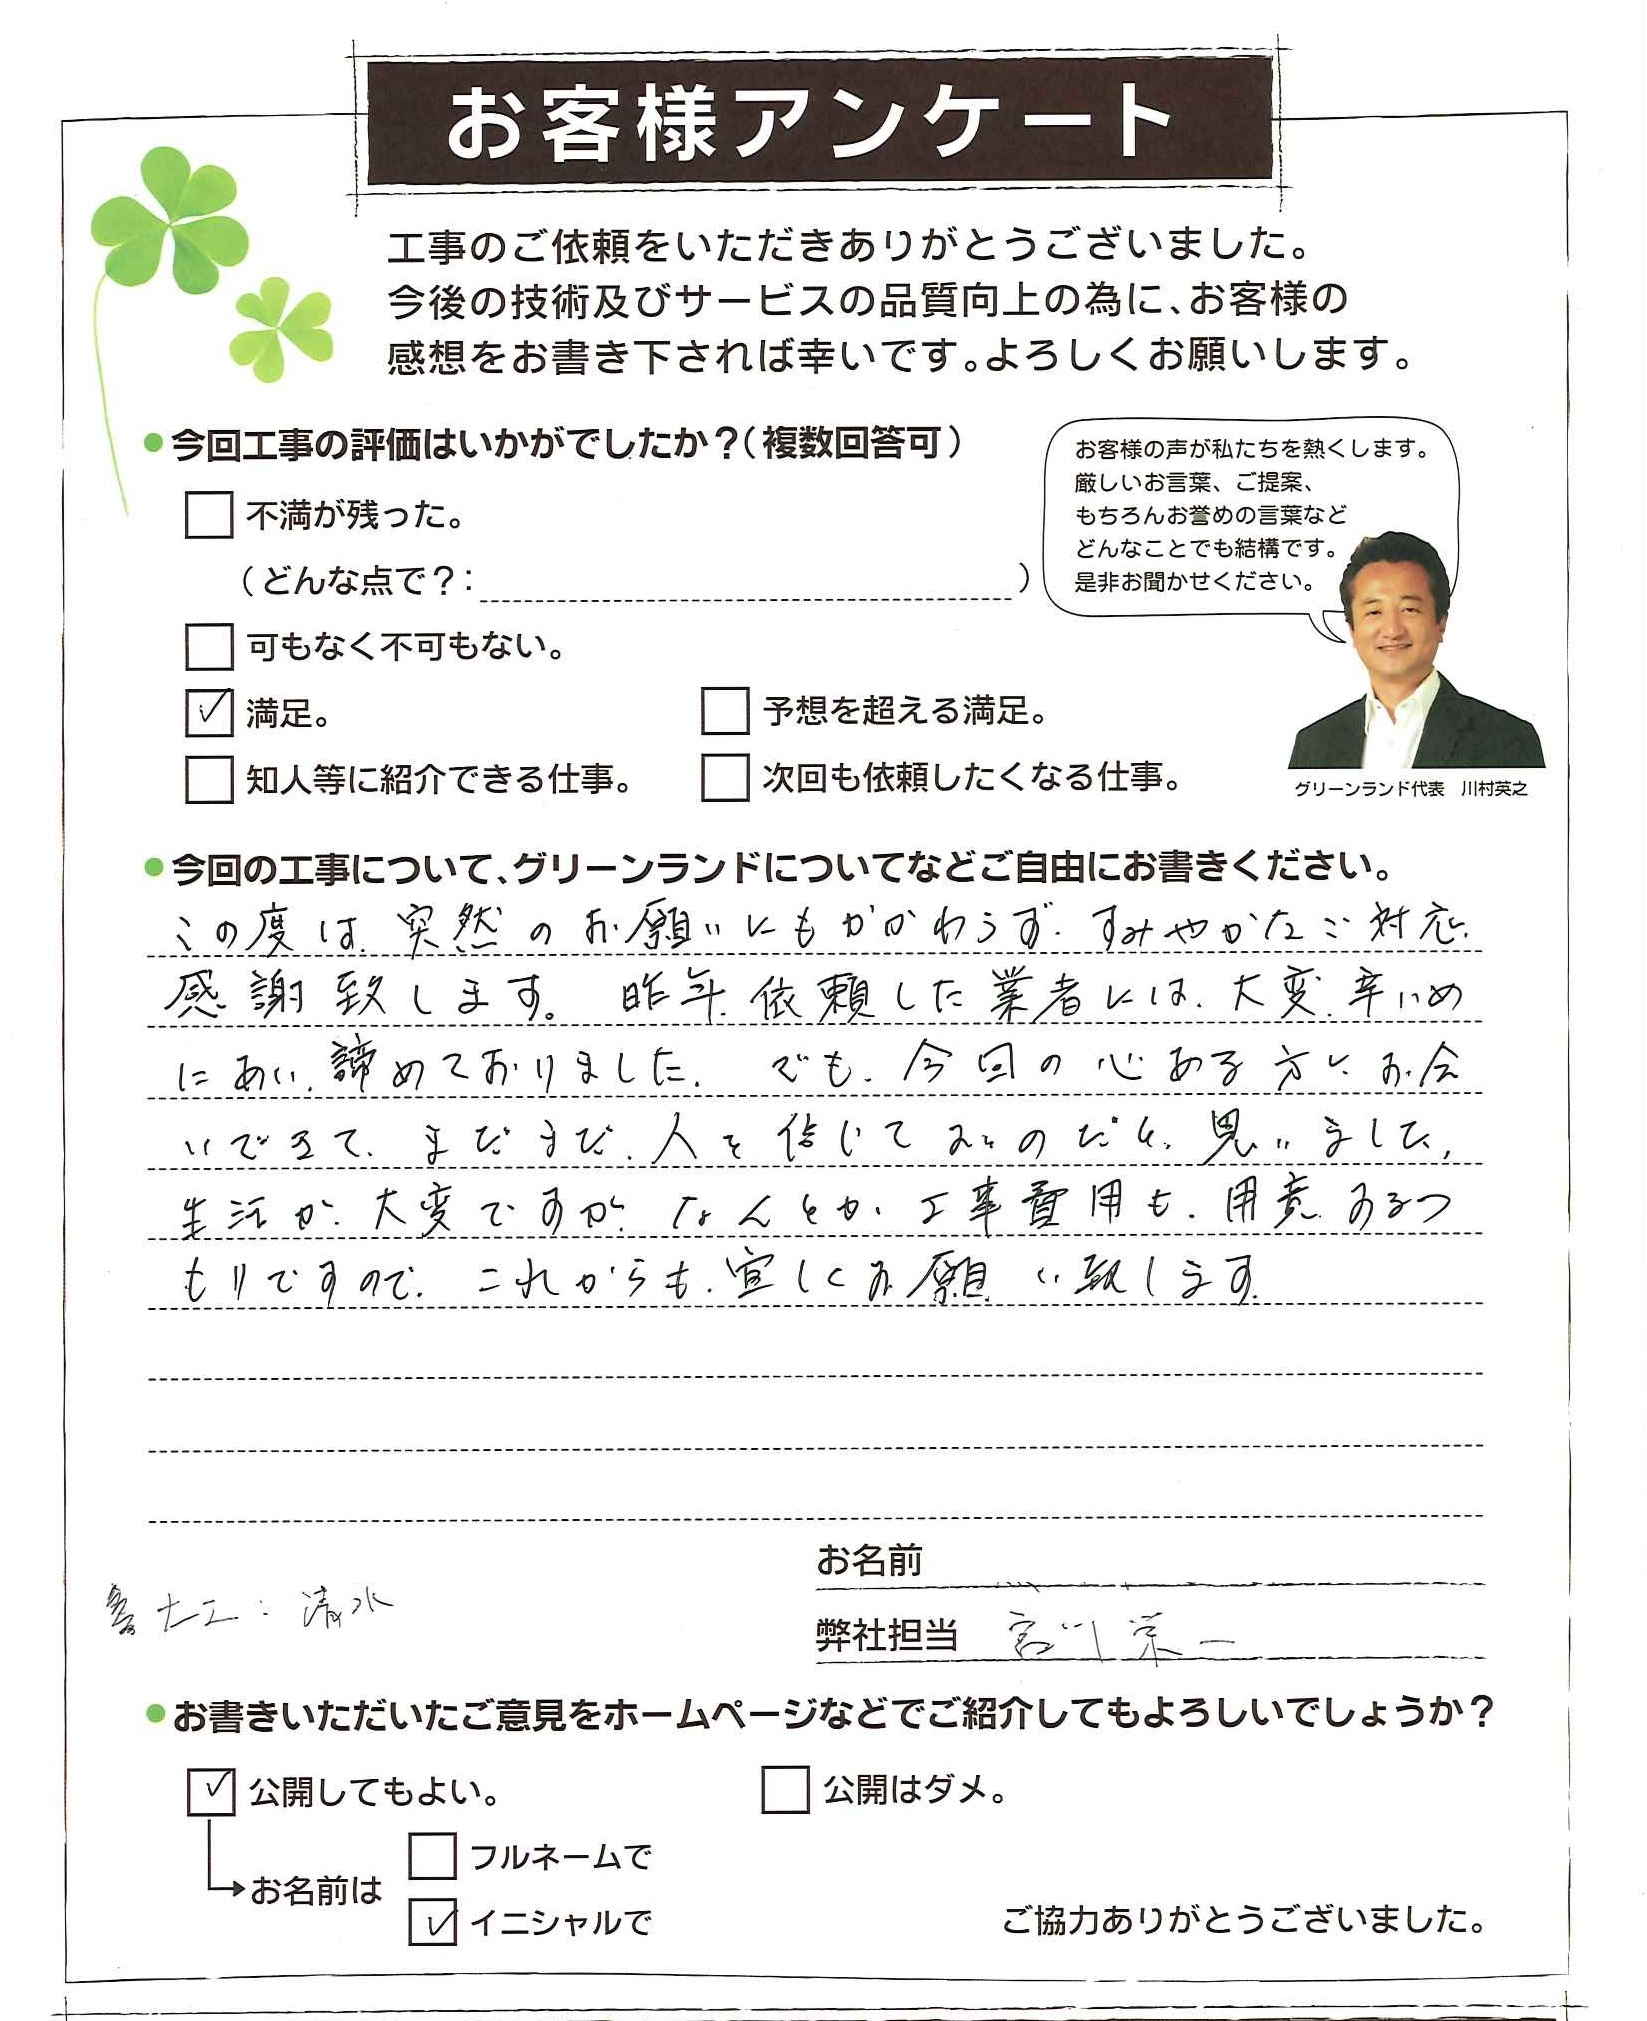 お客様アンケート
工事のご依頼をいただきありがとうございました。
今後の技術及びサービスの品質向上の為に、お客様の
感想をお書き下されば幸いです。よろしくお願いします。
●今回工事の評価はいかがでしたか？（複数回答可）
不満が残った。
（どんな点で？：　）
可もなく不可もない。
満足。
予想を超える満足。
知人等に紹介できる仕事。
次回も依頼したくなる仕事。
お客様の声が私たちを熱くします。
厳しいお言葉、ご提案、
もちろんお誉めの言葉など
どんなことでも結構です。
是非お聞かせください。
グリーンランド代表　川村英之
●今回の工事について、グリーンランドについてなどご自由にお書きください。
この度は、突然のお願いにもかかわらず、すみやかなご対応、
感謝致します。昨年、依頼した業者には、大変、辛いめ
にあい、諦めておりました。でも、今回の心ある方とお会
いできて、まだまだ、人を信じてよいのだと、思いました。
生活が、大変ですが、なんとか、工事費用も、用意するつ
もりですので、これからも、宜しくお願い致します。
お名前
大工：清水
弊社担当　宮川栄一
●お書きいただいたご意見をホームページなどでご紹介してもよろしいでしょうか？
公開してもよい。
公開はダメ。
お名前は
フルネームで
イニシャルで
ご協力ありがとうございました。